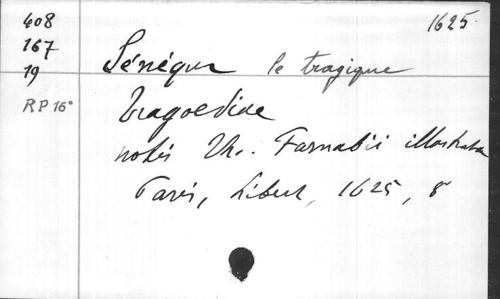 408
167
19
RP 16°
1625.
Sénèque le tragique
Tragoediae
notis Th. Farnabii illustratae
Paris, Libert, 1625, 8°